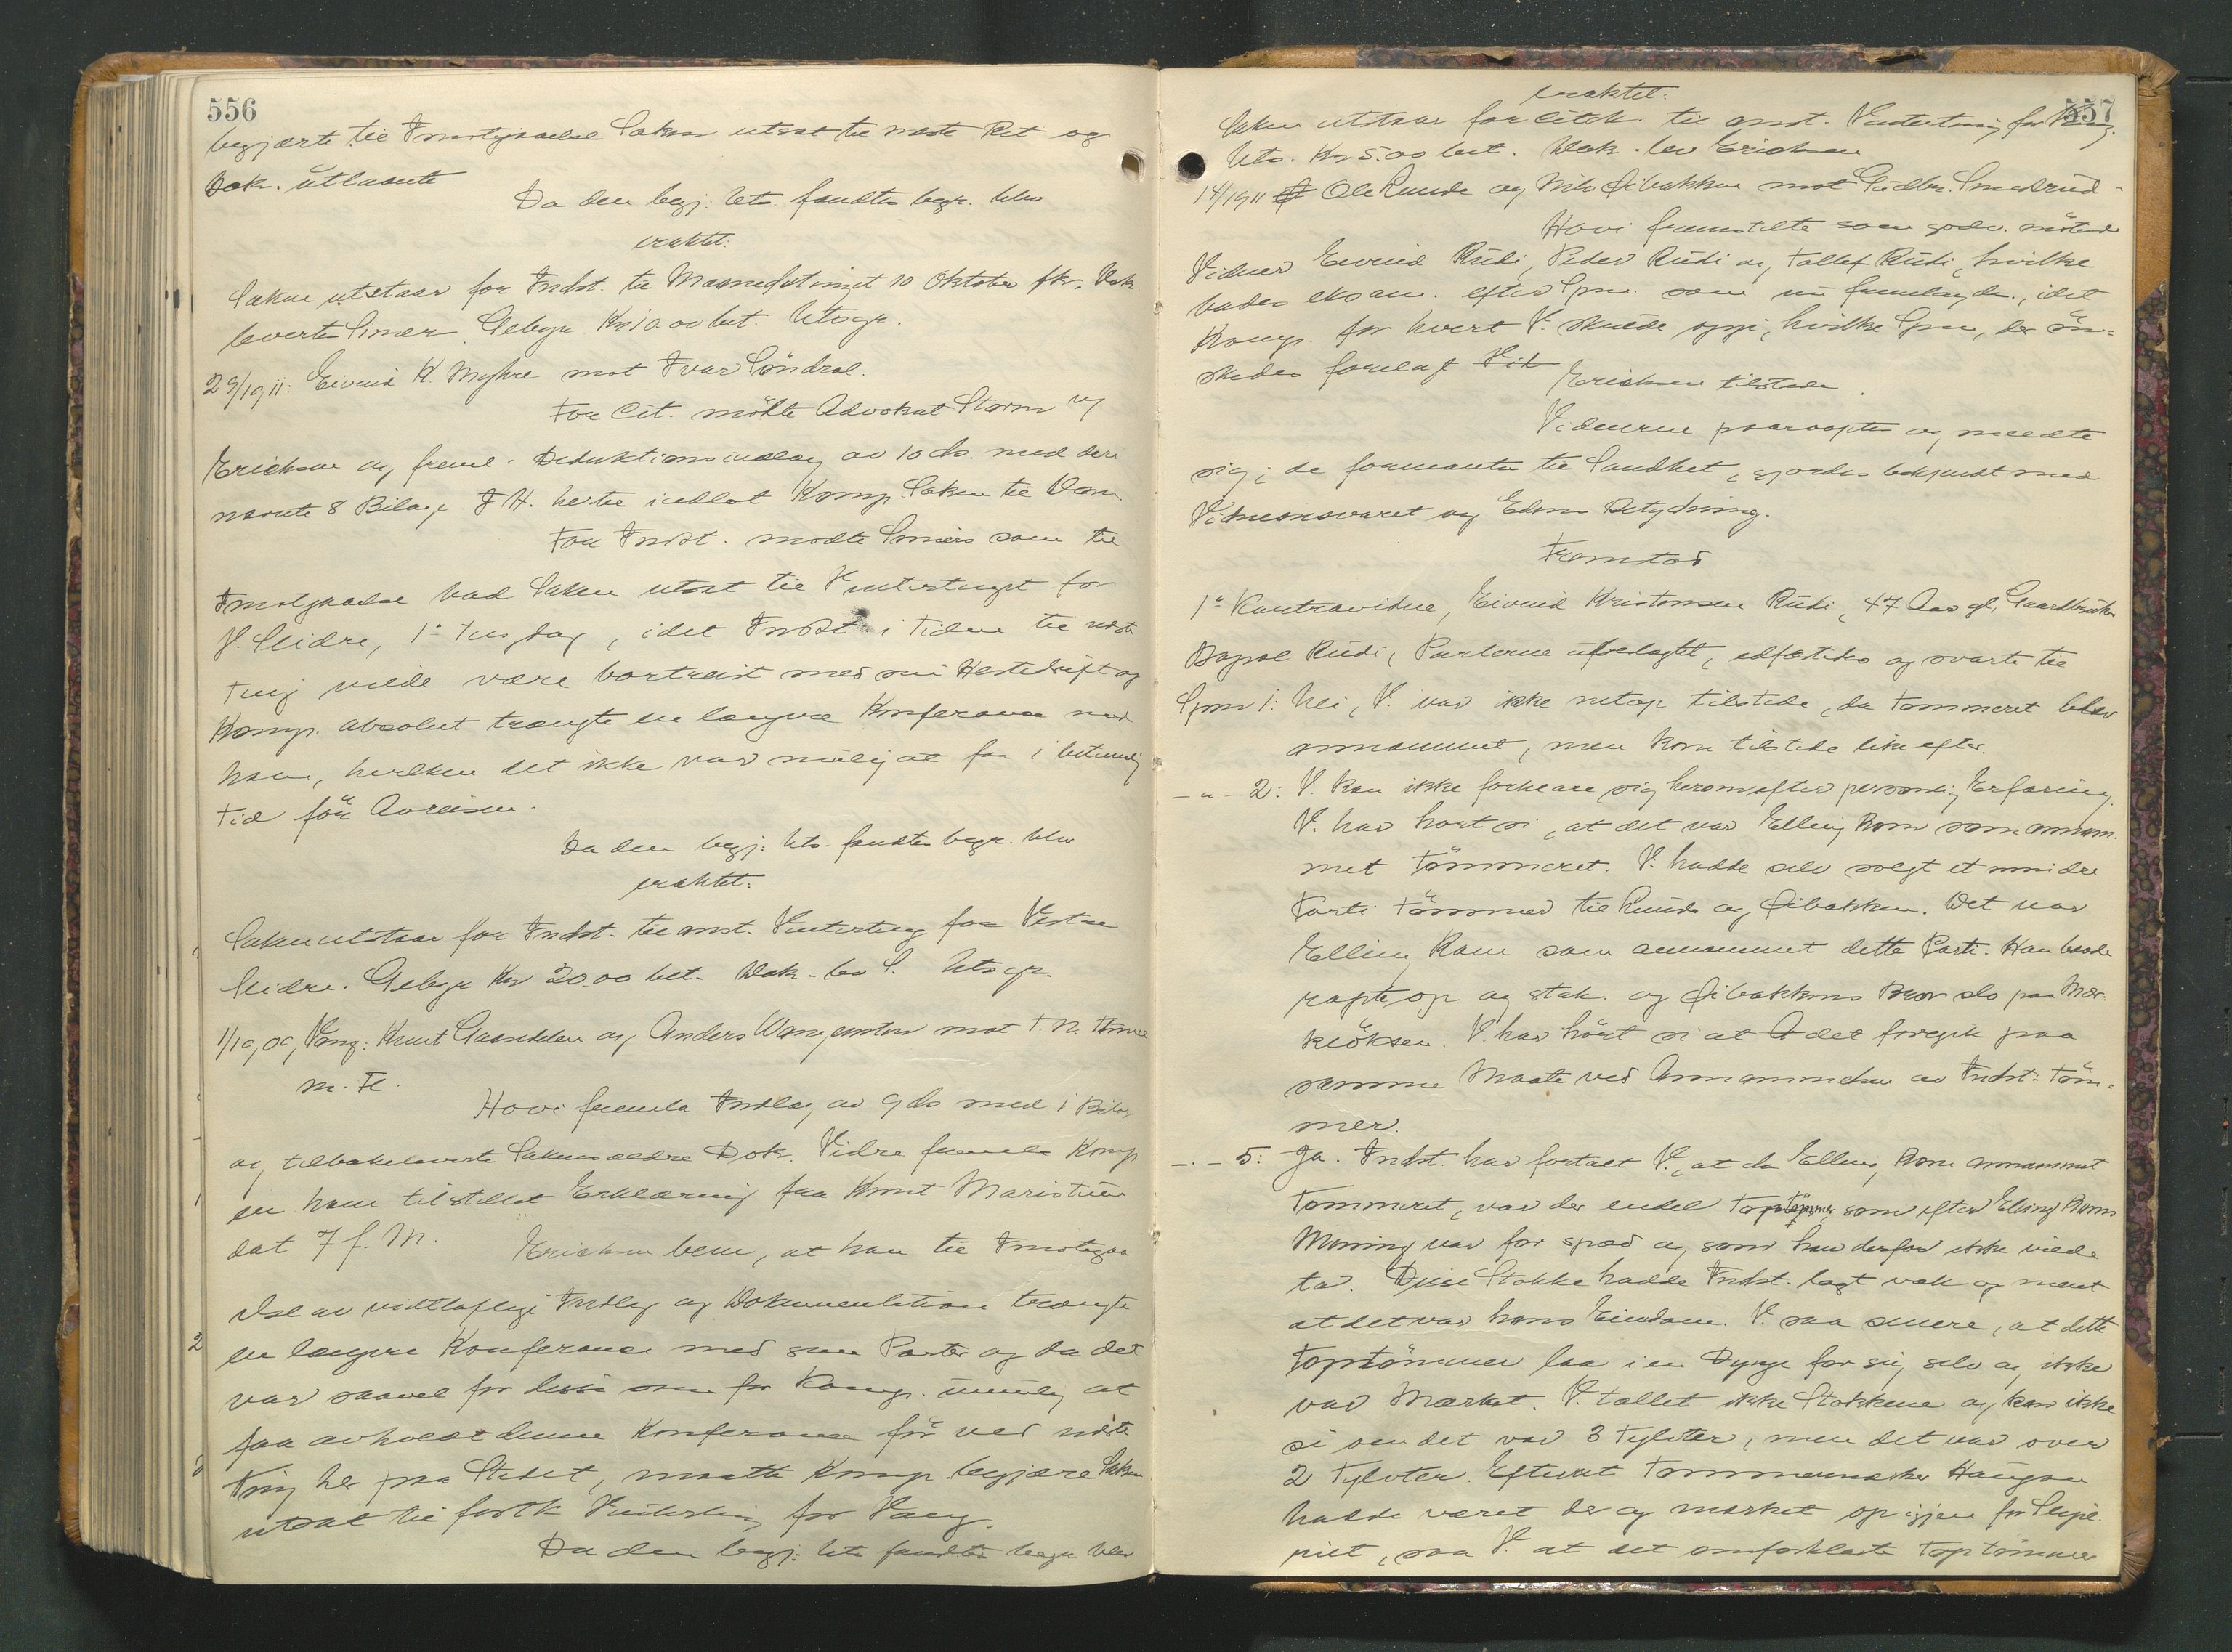 556
begjærte til Imotegaaelse Saken utsat til næste Ret og
Dok. utlaante
Da den begj: Uts. fandtes begr. blev
eraktet:
Saken utstaar for Indst. til Maanedstinget 10 Oktober fk. Dok
levertes Smer. Gebyr Kr 10.00 bet. Utsgr.
29/1911: Eivind K. Myhre mot Ivar Söndrol.
For Cit. mötte Advokat Storm v/
Erichsen og freml. Deduktionsindlæg av 10 ds. med deri
nævnte 8 Bilag. I H. hertil indlot Komp. Saken til Dom
For Indst. mødte Smers som til
Imotgaaelse bad Saken utsat til Vintertinget for
V. Slidre, 1ste Tingdag, idet Indst. i Tiden til næste
Ting vilde være bortreist med sin Hestedrift og
Komp. absolut trængte en længere Konferanse med
ham, hvilken det ikke var mulig at faa i betimelig
Tid för Avreisen.
Da den begj: Uts. fandtes begr. blev
eraktet:
Saken utstaar for Indst. til anst. Vinterting for Vestre
Slidre. Gebyr Kr 20.00 bet. Dok. lev S. Utsgr.
1/10,09, Vang: Knut Gaardden og Anders Wangensten mot T. N.
m. Fl.
Hovi fremla Indlæg av 9 ds med 1 Bilag
og tilbakeleverte Sakens ældre Dok. Vidre fremla Komp
en ham tilstillet Erklæring fra Knut Maristuen
dat 7 f. M. Erichsen bem, at han til Imotegaa
else av vidtløftige Indlæg og Dokumentation trængte
en længere Konferanse med sine Parter og da det
var saavel for disse som for Komp. umulig at
faa avholdt denne Konferanse för ved næste
Ting her paa Stedet, maatte Komp. begjære Saken
utsat til førstk Vinterting for Vang.
Da den begj: Uts fandtes begr blev
557
eraktet:
Saken utstaar for Citch. til anst. Vinterting for Vang.
Uts. Kr 5.00 bet. Dok. lev Erichsen
14/1911 Ole Runde og Nils Öibakken mot Gudbr. Smedsrud.
Hovi fremstilte som godv. mötende
Vidner Eivind Rudi, Peder Rudi og Tollef Rudi, hvilke
bades eksam. efter Spm. som nu fremlagdes, idet
Komp. for hvert V. skulde opgi, hvilke Spm, der ön-
skedes forelagt Vid
Erichsen tilstede.
Vidnerne paaroptes og meldte
sig; de formantes til Sandhet, gjordes bekjendt med
Vidneansvaret og Edens Betydning.
Fremstod
1ste Kontravidne, Eivind Kristensen Rudi, 47 Aar gl, Gaardbruker
Bopæl Rudi, Parterne ubeslegtet, edfæstedes og svarte til
Spm 1: Nei, V. var ikke netop tilstede, da Tømmeret blev
annammet, men kom tilstede like efter.
— " — 2: V. kan ikke forklare sig herom efter personlig Erfaring.
V. har hørt si, at det var Elling Rom som annam-
met Tömmeret. V. hadde selv solgt et mindre
Parti Tömmer til Runde og Öibakken. Det var
Elling Rom som annammet dette Parti. Han baade
ropte op og stak. og Öibakkens Bror slo paa Mær-
keöksen. V. har hört si at det foregik paa
samme Maate ved Annammelsen av Indst. Töm-
mer.
— " — 5: Ja. Indst. har fortalt V., at da Elling Rom annammet
Tømmeret, var der endel Toptömmer, som efter Elling Roms
Mening var for spæd og som han derfor ikke vilde
ta. Disse Stokke hadde Indst. lagt væk og ment
at det var hans Eiendom. V. saa senere, at dette
Toptömmer laa i en Dynge for sig selv og ikke
var Mærket. V. tællet ikke Stokkene og kan ikke
si om det var 3 Tylvter, men det var over
2 Tylvter. Efterat Tømmermerker Haugen
hadde været der og mærket op igjen for
, saa V. at det omforklarte Toptömmer